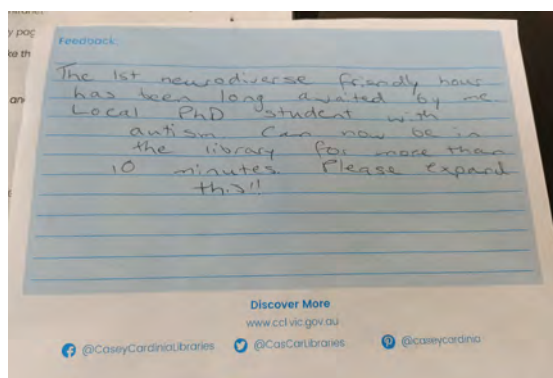 y pag
ke th
an
Feedback:
The 1st neurodiverse friendly hour
has been long awaited by me
Local PhD student with
autism. Can now be in
the library for more than
10 minutes. Please expand
this!!
Discover More
www.ccl.vic.gov.au
@CaseyCardiniaLibraries @CasCarLibraries @caseycardinia